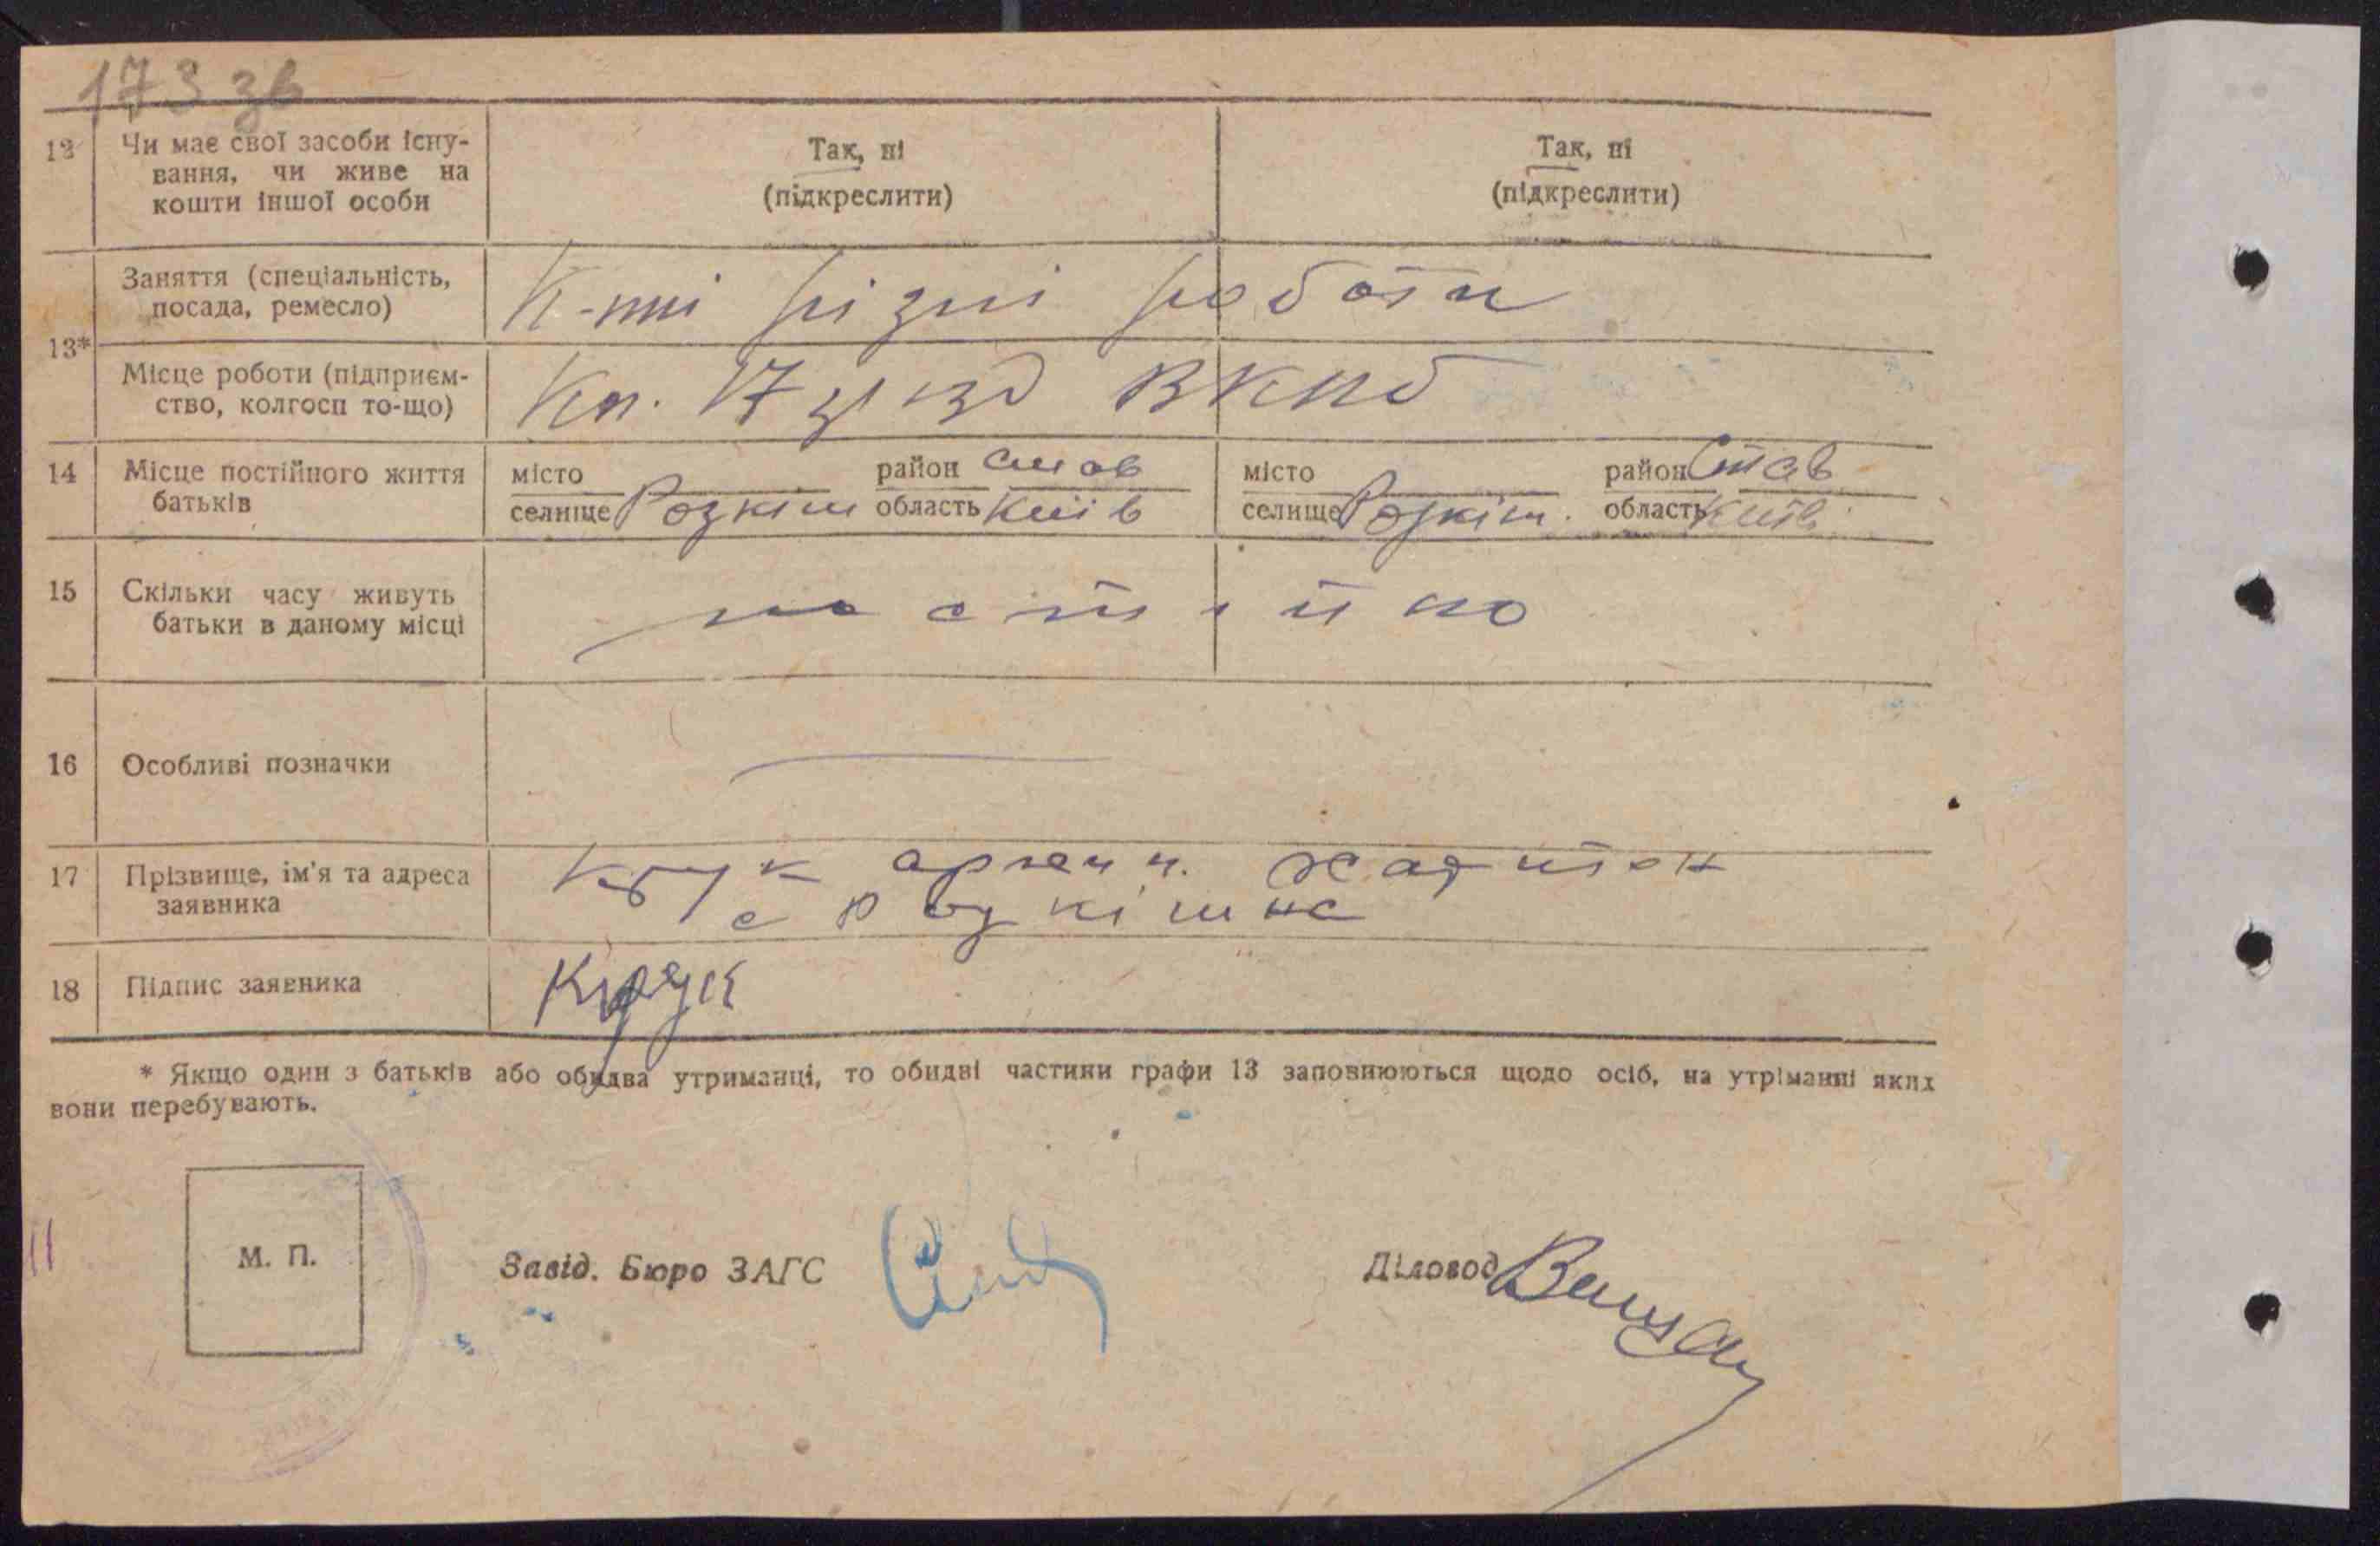 173 зв
12 Чи має свої засоби існу-
вання, чи живе на
кошти іншої особи
Так, ні
(підкреслити)
Так, ні
(підкреслити)
13*
Заняття (спеціальність,
посада, ремесло)
К-пні різні роботи
Місце роботи (підприєм-
ство, колгосп то-що)
Кл. 17 зізд ВКПб
14 Місце постійного життя
батьків
місто район Став
селище Розкіш область Київ
місто район Став
селище Розкіш. область Київ
15 Скільки часу живуть
батьки в даному місці
постійно
16 Особливі позначки
17 Прізвище, ім'я та адреса
заявника
Крук
с Розкішна
18 Підпис заявника
Крук
* Якщо один з батьків або обидва утриманці, то обидві частини графи 13 заповнюються щодо осіб, на утріманні яких
вони перебувають.
М. П.
Завід. Бюро ЗАГС
Діловод